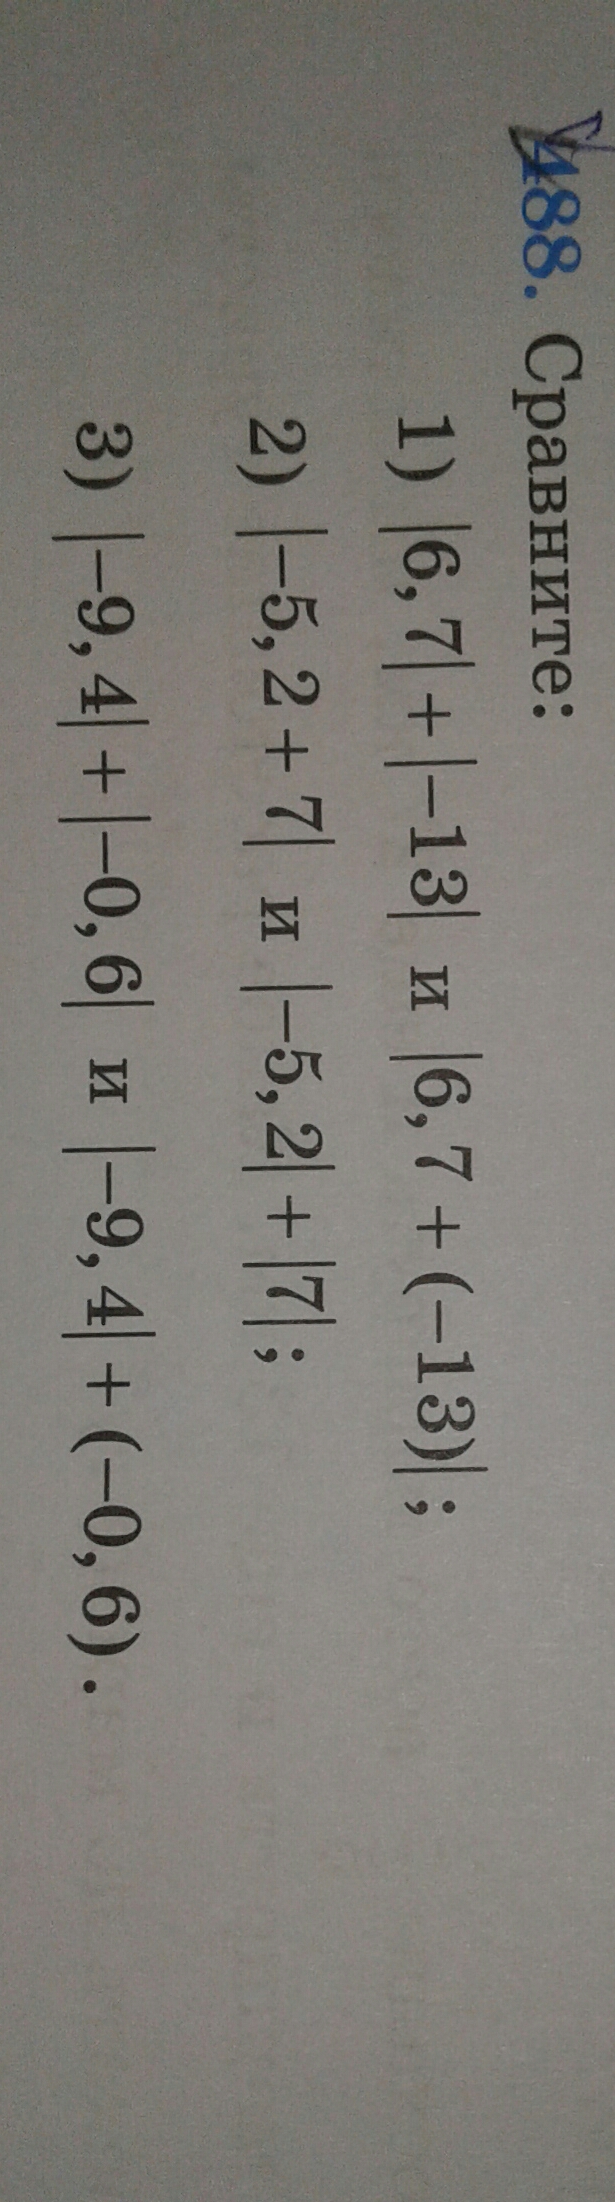 488. Сравните:
1) |6,7| + |−13| и |6,7 + (−13)|;
2) |−5,2 + 7| и |−5,2| + |7|;
3) |−9,4| + |−0,6| и |−9,4| + (−0,6).